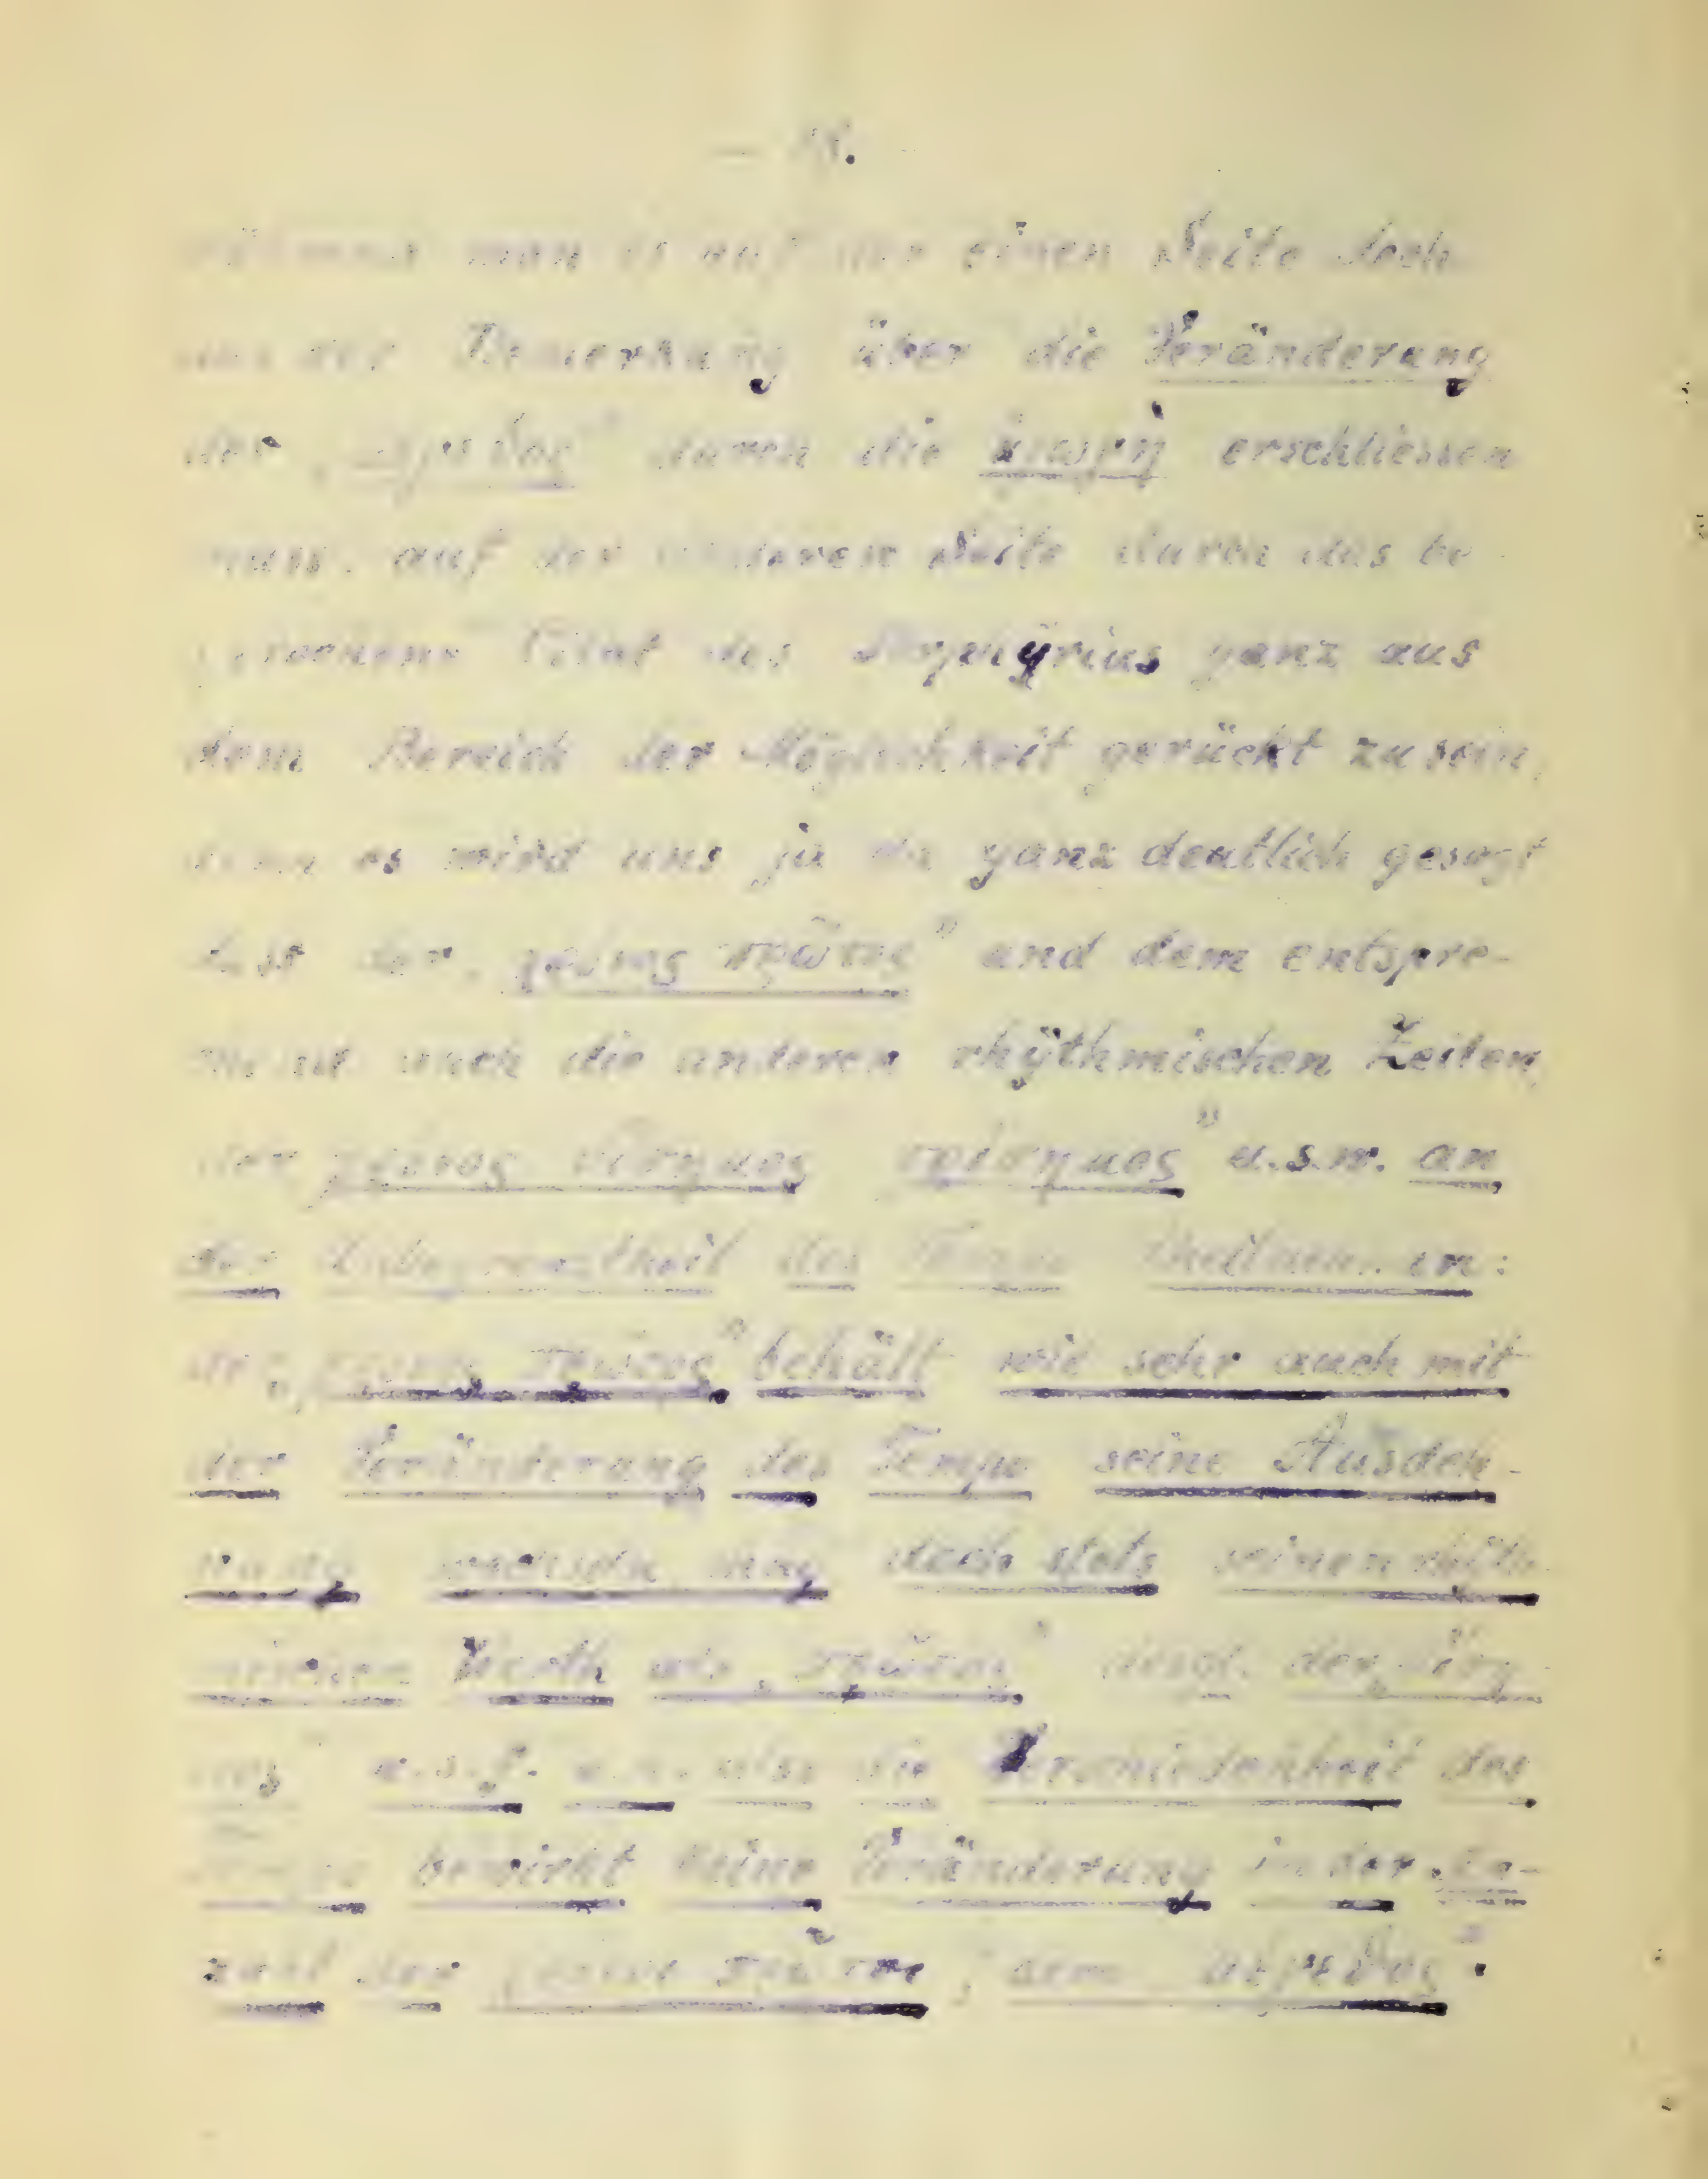 man es auf der einen Seite doch
aus der Bemerkung über die Veränderung
der „ durch die ἀγωγὴ erschliessen
muss, auf der anderen Seite durch das be
Citat des Porphÿrius ganz aus
dem Bereich der Möglichkeit gerückt zu sein,
denn es wird uns ja da ganz deutlich gesagt
dass der „χρόνος πρῶτος" und dem entspre-
chend auch die anderen rhÿthmischen Zeiten,
der χρόνος δίσημος τρίσημος" u.s.w. an
der Unbegrenztheit des Tempo theilnehmen:
der „χρόνος πρῶτος" behält wie sehr auch mit
der Veränderung des Tempo seine Ausdeh-
nung wechseln mag doch stets seinen rhÿth
mischen Werth als „πρῶτος" desgl. der „δίση-
μος" u.s.f. also die Verschiedenheit des
Tempo bewirkt keine Veränderung in der An-
zahl der χρόνοι πρῶτοι, dem „μέγεθος".